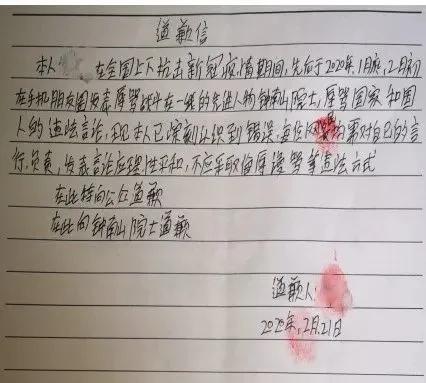 道歉信
本人 在全国上下抗击新冠疫情期间,先后于2020年1月底,2月初
在手机朋友圈发表辱骂战斗在一线的先进人物钟南山院士,辱骂国家和国
人的违法言论,现本人已深刻认识到错误,每位网民均需对自己的言
行负责,发表言论应理性平和,不应采取侮辱谩骂等违法方式
在此特向公众道歉
在此向钟南山院士道歉
道歉人:
2020年,2月21日